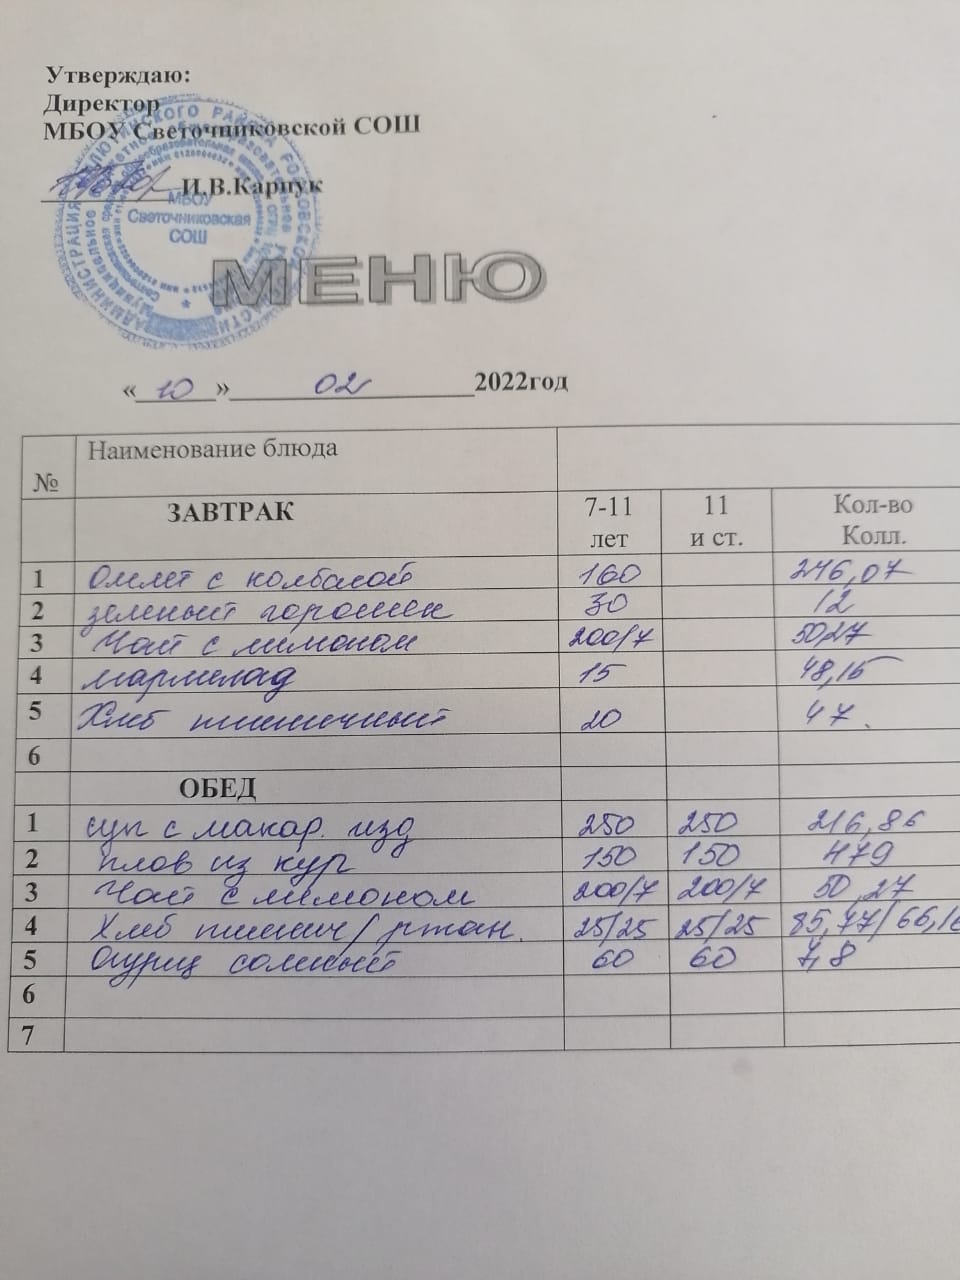 Утверждаю:
Директор
МБОУ Светочниковской СОШ
И.В.Карпук
МБОУ
Светочниковская
СОШ
МЕНЮ
« 10 » 02 2022год
№ Наименование блюда
ЗАВТРАК 7-11 лет 11 и ст. Кол-во Колл.
1 Омлет с колбасой 160 246,07
2 зеленый горошек 30 12
3 Чай с лимоном 200/7 50,27
4 мармелад 15 48,15
5 Хлеб пшеничный 20 47.
6
ОБЕД
1 суп с макар. изд 250 250 216,86
2 плов из кур 150 150 479
3 Чай с лимоном 200/7 200/7 50,27
4 Хлеб пшенич/ ржан. 25/25 25/25 85,77/66,16
5 Огурец соленый 60 60 7,8
6
7